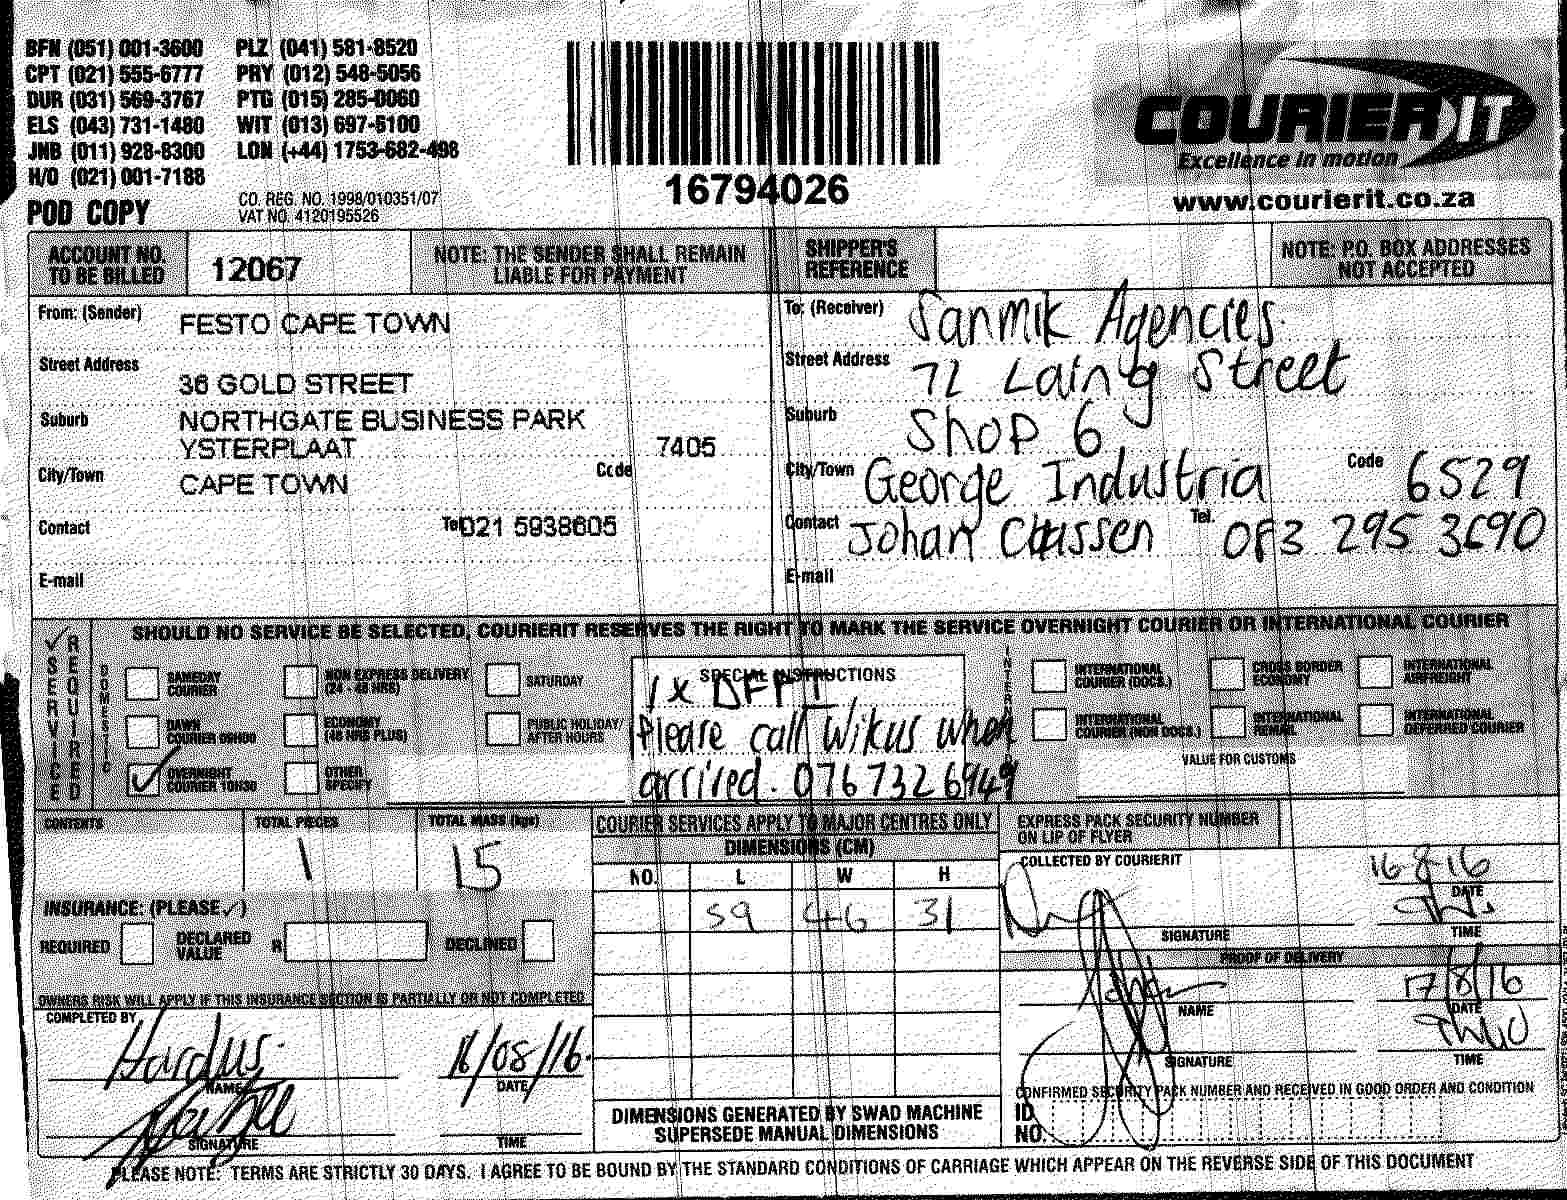 BFN (051) 001-3600 PLZ (041) 581-8520
CPT (021) 555-6777 PRY (012) 548-5056
DUR (031) 569-3767 PTG (015) 285-0060
ELS (043) 731-1480 WIT (013) 697-5100
JNB (011) 928-8300 LON (+44) 1753-682-498
H/O (021) 001-7188
POD COPY
CO. REG. NO. 1998/010351/07
VAT NO. 4120195526
16794026
COURIER IT
Excellence in motion
www.courierit.co.za
ACCOUNT NO. TO BE BILLED
12067
NOTE: THE SENDER SHALL REMAIN
LIABLE FOR PAYMENT
SHIPPER'S
REFERENCE
NOTE: P.O. BOX ADDRESSES
NOT ACCEPTED
From: (Sender) FESTO CAPE TOWN
Street Address
36 GOLD STREET
Suburb NORTHGATE BUSINESS PARK
YSTERPLAAT 7405
City/Town CAPE TOWN Code
Contact Tel 021 5938605
E-mail
To: (Receiver) Sanmik Agencies
Street Address 72 Laing Street
Suburb Shop 6
City/Town George Industria Code 6529
Contact Johan Tel. 295 3690
E-mail
SERVICE REQUIRED
SHOULD NO SERVICE BE SELECTED, COURIERIT RESERVES THE RIGHT TO MARK THE SERVICE OVERNIGHT COURIER OR INTERNATIONAL COURIER
DOMESTIC
SAMEDAY
COURIER
NON EXPRESS DELIVERY
(24 - 48 HRS)
SATURDAY
DAWN
COURIER 09H00
ECONOMY
(48 HRS PLUS)
PUBLIC HOLIDAY/
AFTER HOURS
OVERNIGHT
COURIER 10H30
OTHER
SPECIFY
SPECIAL INSTRUCTIONS
1 x
Please call Wikus when
arrived. 0767326949
INTERNATIONAL
COURIER (DOCS.)
CROSS BORDER
ECONOMY
INTERNATIONAL
AIRFREIGHT
INTERNATIONAL
COURIER (NON DOCS.)
INTERNATIONAL
REMAIL
INTERNATIONAL
DEFERRED COURIER
VALUE FOR CUSTOMS
CONTENTS
TOTAL PIECES
1
TOTAL MASS (kgs)
15
INSURANCE: (PLEASE ✓)
REQUIRED
DECLARED
VALUE
R
DECLINED
OWNERS RISK WILL APPLY IF THIS INSURANCE SECTION IS PARTIALLY OR NOT COMPLETED
COMPLETED BY
Hardus
NAME
16/08/16.
DATE
SIGNATURE
TIME
COURIER SERVICES APPLY TO MAJOR CENTRES ONLY
DIMENSIONS (CM)
NO. L W H
59 46 31
DIMENSIONS GENERATED BY SWAD MACHINE
SUPERSEDE MANUAL DIMENSIONS
EXPRESS PACK SECURITY NUMBER
ON LIP OF FLYER
COLLECTED BY COURIERIT
16-8-16
DATE
SIGNATURE
TIME
PROOF OF DELIVERY
NAME
17/8/16
DATE
SIGNATURE
TIME
CONFIRMED SECURITY PACK NUMBER AND RECEIVED IN GOOD ORDER AND CONDITION
ID
NO.
PLEASE NOTE: TERMS ARE STRICTLY 30 DAYS. I AGREE TO BE BOUND BY THE STANDARD CONDITIONS OF CARRIAGE WHICH APPEAR ON THE REVERSE SIDE OF THIS DOCUMENT